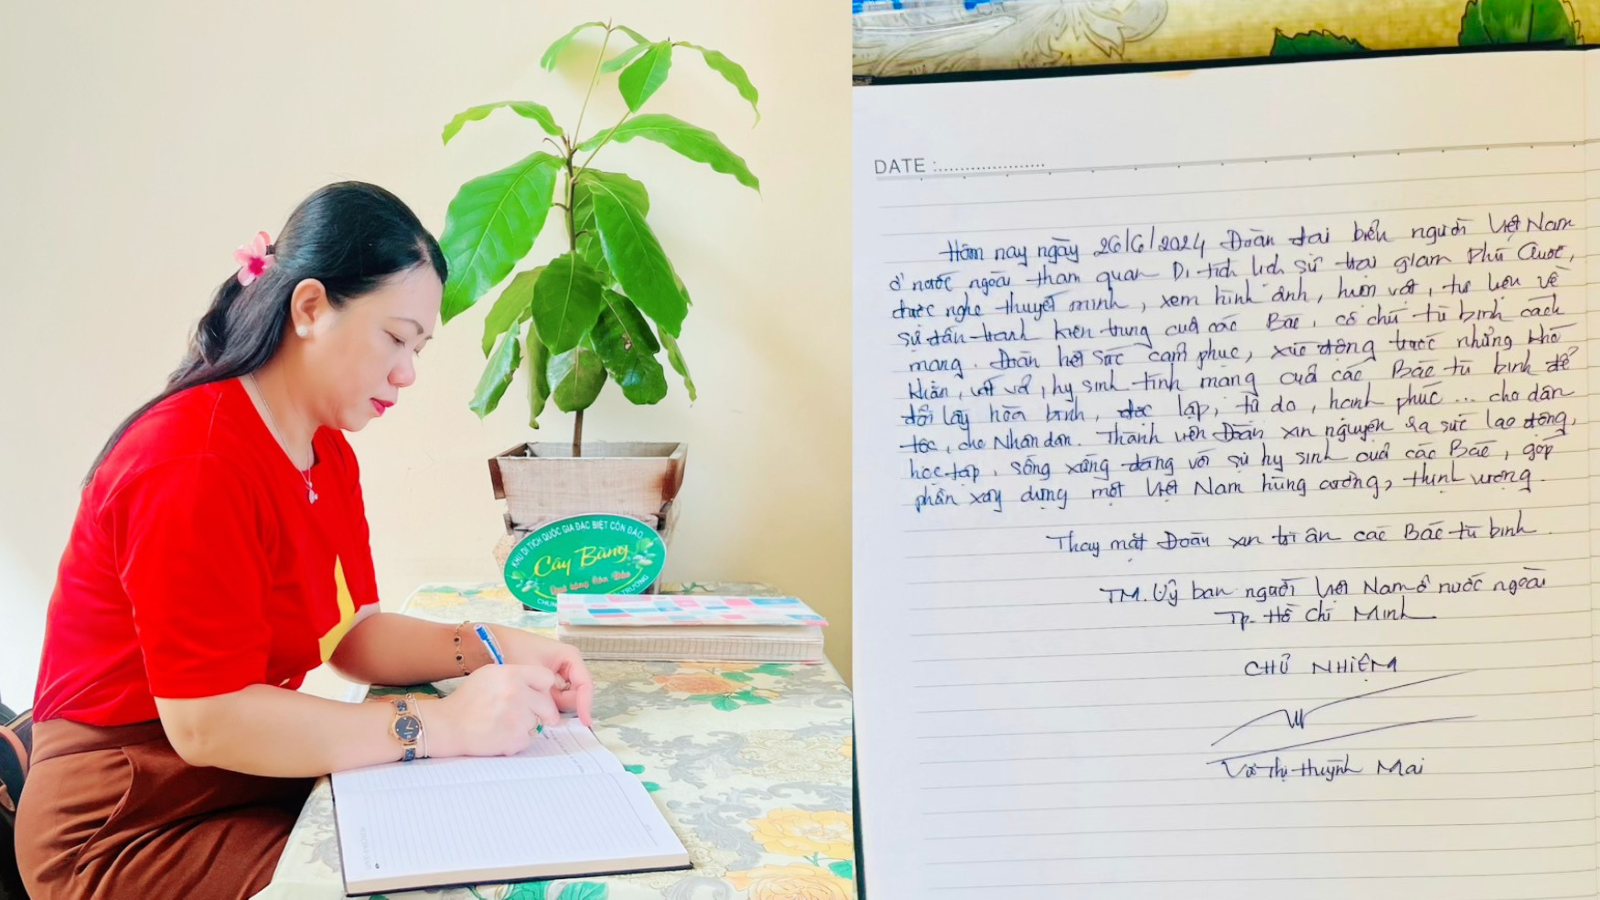 KHU DI TÍCH QUỐC GIA ĐẶC BIỆT CÔN ĐẢO
Cây Bàng
DATE :
Hôm nay ngày 26/6/2024 Đoàn đại biểu người Việt Nam
ở nước ngoài tham quan Di tích lịch sử trại giam Phú Quốc,
được nghe thuyết minh, xem hình ảnh, hiện vật, tư liệu về
sự đấu tranh kiên trung của các Bác, cô chú tù binh cách
mạng. Đoàn hết sức cảm phục, xúc động trước những khó
khăn, vất vả, hy sinh tính mạng của các Bác tù binh để
đổi lấy hòa bình, độc lập, tự do, hạnh phúc ... cho dân
tộc, cho Nhân dân. Thành viên Đoàn xin nguyện ra sức lao động,
học tập, sống xứng đáng với sự hy sinh của các Bác, góp
phần xây dựng một Việt Nam hùng cường, thịnh vượng.
Thay mặt Đoàn xin tri ân các Bác tù binh.
TM. Uỷ ban người Việt Nam ở nước ngoài
Tp. Hồ Chí Minh
CHỦ NHIỆM
Võ Thị Huỳnh Mai